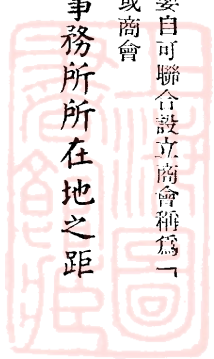 要自可聯合設立商會稱爲「
或商會
事務所所在地之距